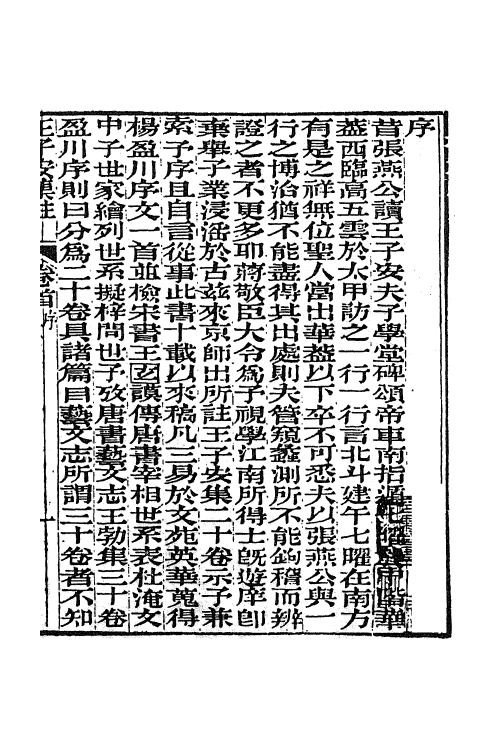 序
昔張燕公讀王子安夫子學堂碑頌帝車南指遁七曜於中階華
蓋西臨高五雲於太甲訪之一行一行言北斗建午七曜在南方
有是之祥無位聖人當出華蓋以下卒不可悉夫以張燕公與一
行之博洽猶不能盡得其出處則夫管窺蠡測所不能鉤稽而辨
證之者不更多耶蔣敬臣大令爲子視學江南所得士旣遊庠卽
棄舉子業浸淫於古茲來京師出所註王子安集二十卷示子兼
索子序且自言從事此書十載以來稿凡三易於文苑英華蒐得
楊盈川序文一首並檢宋書王玄謨傳唐書宰相世系表杜淹文
中子世家繪列世系擬梓問世予攷唐書藝文志王勃集三十卷
盈川序則曰分爲二十卷具諸篇目藝文志所謂三十卷者不知
王子安集註 卷首 序 一